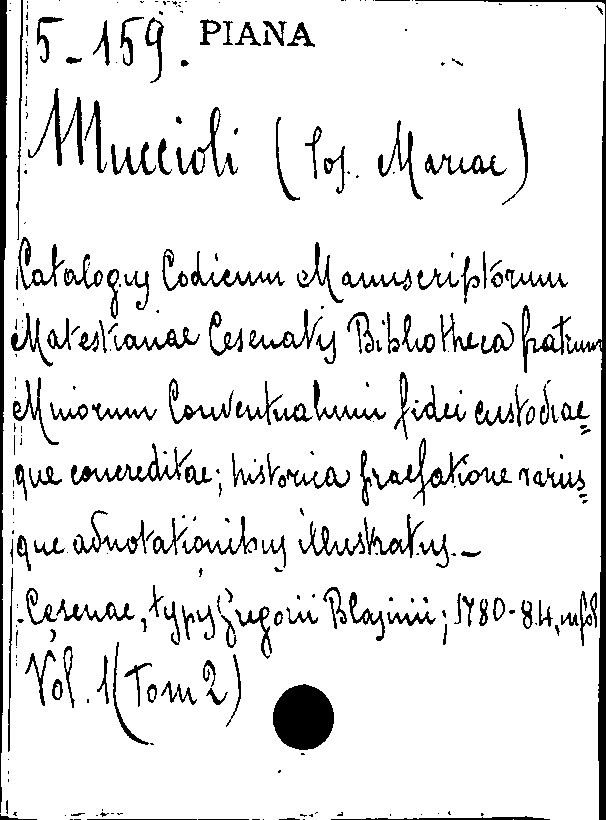 5-159. PIANA
Muccioli (Jos. Mariae)
Catalogus Codicum Manuscriptorum
Malestianae Cesenatis Bibliotheca fratrum
Minorum Conventualium fidei custodiae=
que concreditae; historica praefatione variis=
que adnotationibus illustratus.-
Cesenae, typis Gregorii Blasinii; 1780-84, in fol
Vol. 1 (Tom 2)